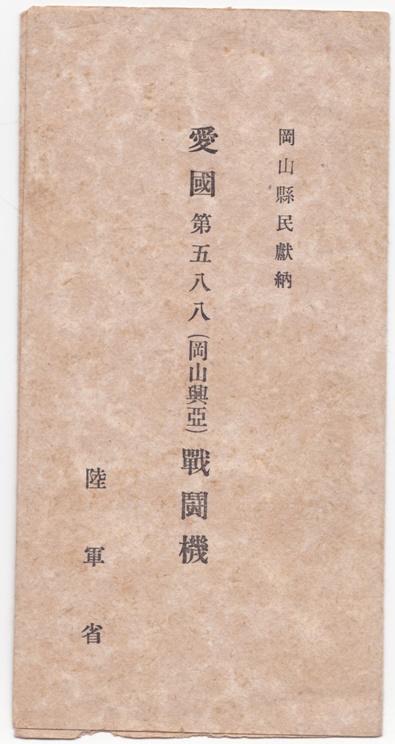 岡山縣民獻納
愛國第五八八(岡山興亞)戰鬪機
陸軍省